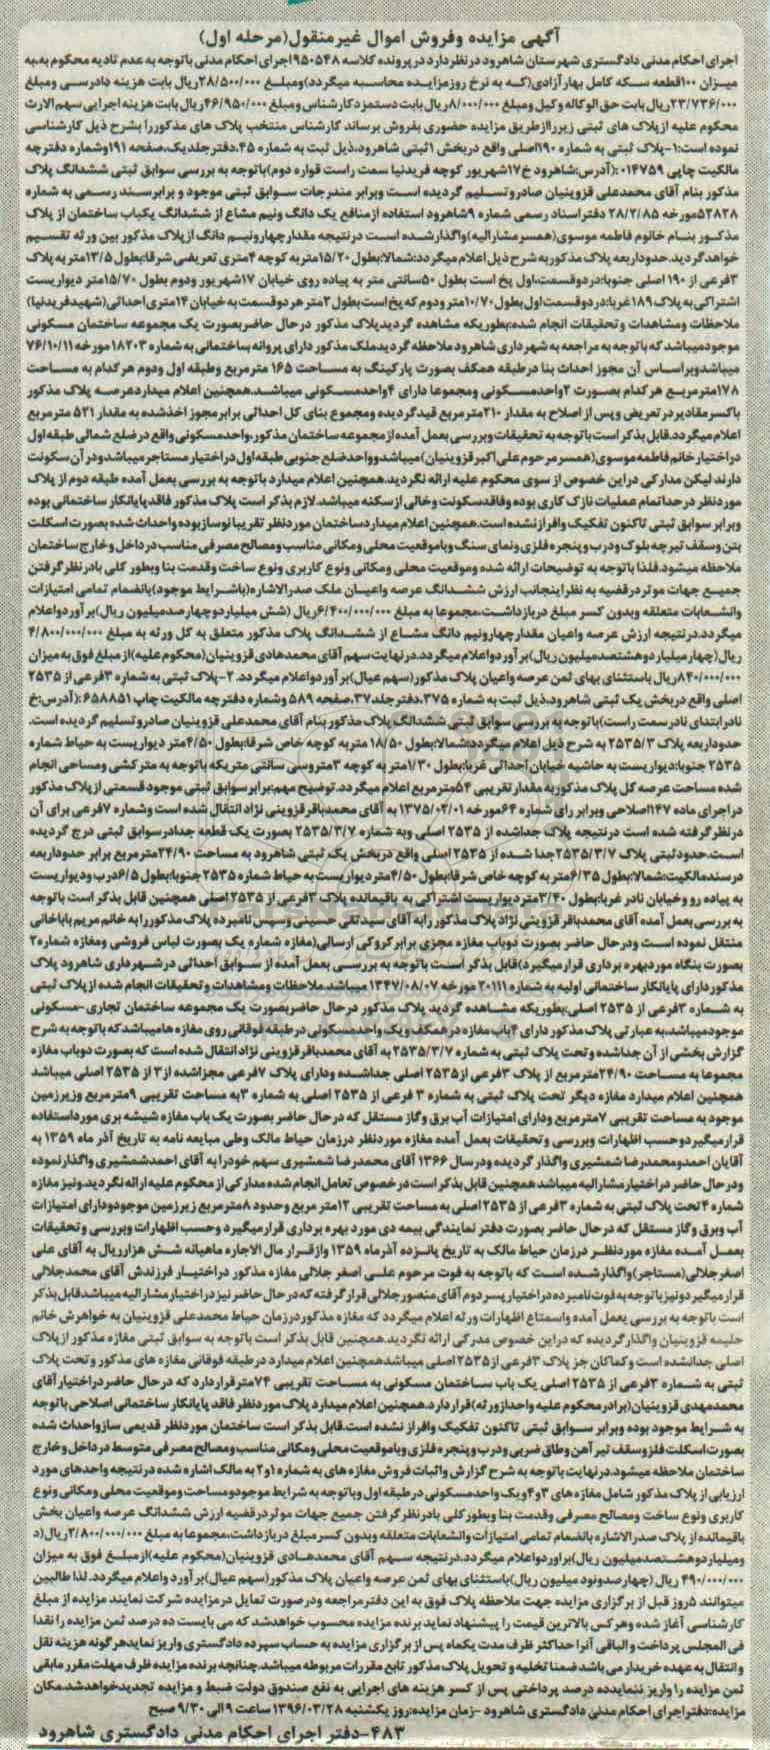 آگهی مزایده وفروش اموال غیرمنقول(مرحله اول)
اجرای احکام مدنی دادگستری شهرستان شاهرود درنظردارد درپرونده کلاسه ۹۵۰۵۴۸اجرای احکام مدنی باتوجه به عدم تادیه محکوم به،به
میزان ۱۰۰قطعه سکه کامل بهارآزادی(که به نرخ روزمزایده محاسبه میگردد)ومبلغ ۲۸/۵۰۰/۰۰۰ریال بابت هزینه دادرسی ومبلغ
۲۳/۷۳۶/۰۰۰ریال بابت حق الوکاله وکیل ومبلغ ۸/۰۰۰/۰۰۰ریال بابت دستمزدکارشناس ومبلغ ۴۶/۹۵۰/۰۰۰ریال بابت هزینه اجرایی سهم الارث
محکوم علیه ازپلاک های ثبتی زیرراازطریق مزایده حضوری بفروش برساند کارشناس منتخب پلاک های مذکوررا بشرح ذیل کارشناسی
نموده است:۱-پلاک ثبتی به شماره ۱۹۰اصلی واقع دربخش ۱ثبتی شاهرود،ذیل ثبت به شماره ۴۵،دفترجلدیک،صفحه ۱۹۱وشماره دفترچه
مالکیت چاپی ۰۱۴۷۵۹:(آدرس:شاهرود خ۱۷شهریور کوچه فریدنیا سمت راست قواره دوم)باتوجه به بررسی سوابق ثبتی ششدانگ پلاک
مذکور بنام آقای محمدعلی قزوینیان صادروتسلیم گردیده است وبرابر مندرجات سوابق ثبتی موجود و برابرسند رسمی به شماره
۵۲۸۲۸مورخه ۲۸/۲/۸۵ دفتراسناد رسمی شماره ۹شاهرود استفاده ازمنافع یک دانگ ونیم مشاع از ششدانگ یکباب ساختمان از پلاک
مذکور بنام خانوم فاطمه موسوی(همسرمشارالیه)واگذارشده است درنتیجه مقدارچهارونیم دانگ ازپلاک مذکور بین ورثه تقسیم
خواهدگردید.حدوداربعه پلاک مذکوربه شرح ذیل اعلام میگردد:شمالا:بطول ۱۵/۲۰متربه کوچه ۴متری تعریضی شرقا:بطول ۱۳/۵متربه پلاک
۳فرعی از ۱۹۰ اصلی جنوبا:دردوقسمت،اول پخ است بطول ۵۰سانتی متر به پیاده روی خیابان ۱۷شهریور ودوم بطول ۱۵/۷۰متر دیواریست
اشتراکی به پلاک ۱۸۹غربا:دردوقسمت اول بطول ۱۰/۷۰متر ودوم که پخ است بطول ۲متر هردوقسمت به خیابان ۱۴متری احداثی(شهیدفریدنیا)
ملاحظات ومشاهدات و تحقیقات انجام شده:بطوریکه مشاهده گردیدپلاک مذکور درحال حاضربصورت یک مجموعه ساختمان مسکونی
موجودمیباشدکه باتوجه به مراجعه به شهرداری شاهرود ملاحظه گردیدملک مذکوردارای پروانه ساختمانی به شماره ۱۸۲۰۳مورخه ۷۶/۱۰/۱۱
میباشدوبراساس آن مجوز احداث بنا درطبقه همکف بصورت پارکینگ به مساحت ۱۶۵ مترمربع وطبقه اول ودوم هرکدام به مساحت
۱۷۸مترمربع هرکدام بصورت ۲واحدمسکونی ومجموعا دارای ۴واحدمسکونی میباشد.همچنین اعلام میداردعرصه پلاک مذکور
باکسرمقادیردرتعریض وپس از اصلاح به مقدار ۲۱۰مترمربع قیدگردیده ومجموع بنای کل احداثی برابرمجوز اخذشده به مقدار ۵۲۱ مترمربع
اعلام میگردد.قابل بذکر است باتوجه به تحقیقات وبررسی بعمل آمده ازمجموعه ساختمان مذکور،واحدمسکونی واقع درضلع شمالی طبقه اول
دراختیار خانم فاطمه موسوی(همسرمرحوم علی اکبرقزوینیان)میباشد وواحدضلع جنوبی طبقه اول دراختیارمستاجرمیباشدودر آن سکونت
دارند لیکن مدارکی دراین خصوص از سوی محکوم علیه ارائه نگردید.همچنین اعلام میدارد باتوجه به بررسی بعمل آمده طبقه دوم از پلاک
موردنظر درحداتمام عملیات نازک کاری بوده وفاقدسکونت وخالی ازسکنه میباشد.لازم بذکر است پلاک مذکور فاقدپایانکار ساختمانی بوده
وبرابر سوابق ثبتی تاکنون تفکیک وافرازنشده است.همچنین اعلام میداردساختمان موردنظر تقریبا نوسازبوده واحداث شده بصورت اسکلت
بتن وسقف تیرچه بلوک ودرب و پنجره فلزی ونمای سنگ وباموقعیت محلی ومکانی مناسب ومصالح مصرفی مناسب درداخل وخارج ساختمان
ملاحظه میشود.فلذا باتوجه به توضیحات ارائه شده وموقعیت محلی ومکانی ونوع کاربری ونوع ساخت وقدمت بنا وبطور کلی بادرنظرگرفتن
جمیع جهات موثردرقضیه به نظراینجانب ارزش ششدانگ عرصه واعیان ملک صدرالاشاره(باشرایط موجود)بانضمام تمامی امتیازات
وانشعابات متعلقه وبدون کسر مبلغ دربازداشت،مجموعا به مبلغ ۶/۴۰۰/۰۰۰/۰۰۰ریال (شش میلیاردوچهارصدمیلیون ریال)برآوردواعلام
میگردد.درنتیجه ارزش عرصه واعیان مقدارچهارونیم دانگ مشاع از ششدانگ پلاک مذکور متعلق به کل ورثه به مبلغ ۴/۸۰۰/۰۰۰/۰۰۰
ریال(چهارمیلیاردوهشتصدمیلیون ریال)برآوردواعلام میگردد.درنهایت سهم آقای محمدهادی قزوینیان(محکوم علیه)ازمبلغ فوق به میزان
۸۴۰/۰۰۰/۰۰۰ریال باستثنای بهای ثمن عرصه واعیان پلاک مذکور(سهم عیال)برآوردواعلام میگردد. ۲-پلاک ثبتی به شماره ۳فرعی از ۲۵۳۵
اصلی واقع دربخش یک ثبتی شاهرود،ذیل ثبت به شماره ۳۷۵،دفترجلد۳۷،صفحه ۵۸۹ وشماره دفترچه مالکیت چاپ ۶۵۸۸۵۱:(آدرس:خ
نادرابتدای نادرسمت راست)باتوجه به بررسی سوابق ثبتی ششدانگ پلاک مذکوربنام آقای محمدعلی قزوینیان صادروتسلیم گردیده است.
حدوداربعه پلاک ۲۵۳۵/۳ به شرح ذیل اعلام میگردد:شمالا:بطول ۱۸/۵۰ متربه کوچه خاص شرقا:بطول ۴/۵۰متر دیواریست به حیاط شماره
۲۵۳۵ جنوبا:دیواریست به حاشیه خیابان احداثی غربا:بطول ۱/۳۰متر به کوچه ۳متروسی سانتی متریکه باتوجه به مترکشی ومساحی انجام
شده مساحت عرصه کل پلاک مذکوربه مقدار تقریبی ۵۴مترمربع اعلام میگردد.توضیح مهم:برابرسوابق ثبتی موجود قسمتی ازپلاک مذکور
دراجرای ماده ۱۴۷اصلاحی وبرابر رای شماره ۶۴مورخه ۱۳۷۵/۰۲/۰۱ به آقای محمدباقرقزوینی نژاد انتقال شده است وشماره ۷فرعی برای آن
درنظرگرفته شده است درنتیجه پلاک جداشده از ۲۵۳۵ اصلی وبه شماره ۲۵۳۵/۳/۷ بصورت یک قطعه جدادرسوابق ثبتی درج گردیده
است.حدودثبتی پلاک ۲۵۳۵/۳/۷جدا شده از ۲۵۳۵ اصلی واقع دربخش یک ثبتی شاهرود به مساحت ۲۴/۹۰مترمربع برابر حدوداربعه
درسندمالکیت:شمالا:بطول ۶/۳۵متربه کوچه خاص شرقا:بطول ۴/۵۰متردیواریست به حیاط شماره ۲۵۳۵ جنوبا:بطول ۶/۵درب ودیواریست
به پیاده رو وخیابان نادر غربا:بطول ۳/۴۰متردیواریست اشتراکی به باقیمانده پلاک ۳فرعی از ۲۵۳۵ اصلی همچنین قابل بذکر است باتوجه
به بررسی بعمل آمده آقای محمدباقرقزوینی نژاد پلاک مذکور رابه آقای سیدتقی حسینی وسپس نامبرده پلاک مذکوررابه خانم مریم باباخانی
منتقل نموده است ودرحال حاضر بصورت دوباب مغازه مجزی برابرکروکی ارسالی(مغازه شماره یک بصورت لباس فروشی ومغازه شماره۲
بصورت بنگاه موردبهره برداری قرارمیگیرد)قابل بذکر است باتوجه به بررسی بعمل آمده از سوابق احداثی درشهرداری شاهرود پلاک
مذکوردارای پایانکار ساختمانی اولیه به شماره ۲۰۱۱۱ مورخه ۱۳۴۷/۰۸/۰۷ میباشد.ملاحظات ومشاهدات وتحقیقات انجام شده ازپلاک ثبتی
به شماره ۳فرعی از ۲۵۳۵ اصلی:بطوریکه مشاهده گردید پلاک مذکور درحال حاضربصورت یک مجموعه ساختمان تجاری-مسکونی
موجودمیباشد.به عبارتی پلاک مذکور دارای ۴باب مغازه درهمکف ویک واحدمسکونی درطبقه فوقانی روی مغازه هامیباشدکه باتوجه به شرح
گزارش بخشی از آن جداشده وتحت پلاک ثبتی به شماره ۲۵۳۵/۳/۷ به آقای محمدباقرقزوینی نژاد انتقال شده است که بصورت دوباب مغازه
مجموعا به مساحت ۲۴/۹۰مترمربع از پلاک ۳فرعی از۲۵۳۵ اصلی جداشده ودارای پلاک ۷فرعی مجزاشده از۳ از ۲۵۳۵ اصلی میباشد
همچنین اعلام میدارد مغازه دیگر تحت پلاک ثبتی به شماره ۳ فرعی از ۲۵۳۵ اصلی به شماره ۳به مساحت تقریبی ۹مترمربع وزیرزمین
موجود به مساحت تقریبی ۷مترمربع ودارای امتیازات آب برق وگاز مستقل که درحال حاضر بصورت یک باب مغازه شیشه بری مورداستفاده
قرارمیگیردوحسب اظهارات وبررسی وتحقیقات بعمل آمده مغازه موردنظر درزمان حیاط مالک وطی مبایعه نامه به تاریخ آذر ماه ۱۳۵۹ به
آقایان احمدومحمدرضا شمشیری واگذار گردیده ودرسال ۱۳۶۶ آقای محمدرضا شمشیری سهم خودرا به آقای احمدشمشیری واگذارنموده
ودرحال حاضر دراختیارمشارالیه میباشد همچنین قابل بذکر است درخصوص تعامل انجام شده مدارکی از محکوم علیه ارائه نگردید.ونیز مغازه
شماره ۴تحت پلاک ثبتی به شماره ۳فرعی از ۲۵۳۵ اصلی به مساحت تقریبی ۱۲متر مربع وحدود ۸مترمربع زیرزمین موجودودارای امتیازات
آب وبرق وگاز مستقل که درحال حاضر بصورت دفتر نمایندگی بیمه دی مورد بهره برداری قرارمیگیرد وحسب اظهارات وبررسی وتحقیقات
بعمل آمده مغازه موردنظر درزمان حیاط مالک به تاریخ پانزده آذرماه ۱۳۵۹ وازقرار مال الاجاره ماهیانه شش هزارریال به آقای علی
اصغرجلالی(مستاجر)واگذارشده است که باتوجه به فوت مرحوم علی اصغر جلالی مغازه مذکور دراختیار فرزندش آقای محمدجلالی
قرارمیگیردونیزباتوجه به فوت نامبرده دراختیار پسردوم آقای منصورجلالی قرارگرفته که درحال حاضرنیز دراختیارمشارالیه میباشدقابل بذکر
است باتوجه به بررسی بعمل آمده واستماع اظهارات ورثه اعلام میگردد که مغازه مذکوردرزمان حیاط محمدعلی قزوینیان به خواهرش خانم
حلیمه قزوینیان واگذارگردیده که دراین خصوص مدرکی ارائه نگردید.همچنین قابل بذکر است باتوجه به سوابق ثبتی مغازه مذکور ازپلاک
اصلی جدانشده است وکماکان جز پلاک ۳فرعی از۲۵۳۵ اصلی میباشدهمچنین اعلام میدارد درطبقه فوقانی مغازه های مذکور وتحت پلاک
ثبتی به شماره ۳فرعی از ۲۵۳۵ اصلی یک باب ساختمان مسکونی به مساحت تقریبی ۷۴مترقراردارد که درحال حاضر دراختیارآقای
محمدمهدی قزوینیان(برادرمحکوم علیه واحدازورثه)قراردارد.همچنین اعلام میدارد پلاک موردنظر فاقد پایانکار ساختمانی اصلاحی باتوجه
به شرایط موجود بوده وبرابر سوابق ثبتی تاکنون تفکیک وافراز نشده است.قابل بذکر است ساختمان موردنظر قدیمی سازواحداث شده
بصورت اسکلت فلزوسقف تیرآهن وطاق ضربی ودرب و پنجره فلزی وباموقعیت محلی ومکانی مناسب ومصالح مصرفی متوسط درداخل وخارج
ساختمان ملاحظه میشود.درنهایت باتوجه به شرح گزارش واثبات فروش مغازه های به شماره ۱و۲ به مالک اشاره شده درنتیجه واحدهای مورد
ارزیابی از پلاک مذکور شامل مغازه های ۳و۴و یک واحدمسکونی درطبقه اول وباتوجه به شرایط موجودومساحت وموقعیت محلی ومکانی ونوع
کاربری ونوع ساخت ومصالح مصرفی وقدمت بنا وبطورکلی بادرنظرگرفتن جمیع جهات موثردرقضیه ارزش ششدانگ عرصه واعیان بخش
باقیمانده از پلاک صدرالاشاره بانضمام تمامی امتیازات وانشعابات متعلقه وبدون کسرمبلغ دربازداشت،مجموعا به مبلغ ۲/۸۰۰/۰۰۰/۰۰۰ریال(د
ومیلیاردوهشتصدمیلیون ریال)براوردواعلام میگردد.درنتیجه سهم آقای محمدهادی قزوینیان(محکوم علیه)ازمبلغ فوق به میزان
۴۹۰/۰۰۰/۰۰۰ ریال (چهارصدونود میلیون ریال)باستثنای بهای ثمن عرصه واعیان پلاک مذکور(سهم عیال)برآورد واعلام میگردد. لذا طالبین
میتوانند ۵روز قبل از برگزاری مزایده جهت ملاحظه پلاک فوق به این دفترمراجعه ودرصورت تمایل درمزایده شرکت نمایند مزایده از مبلغ
کارشناسی آغاز شده وهرکس بالاترین قیمت را پیشنهاد نماید برنده مزایده محسوب خواهدشد که می بایست ده درصد ثمن مزایده را نقدا
فی المجلس پرداخت والباقی آنرا حداکثر ظرف مدت یکماه پس از برگزاری مزایده به حساب سپرده دادگستری واریز نمایدهرگونه هزینه نقل
وانتقال به عهده خریدار می باشد ضمنا تخلیه و تحویل پلاک مذکور تابع مقررات مربوطه میباشد.چنانچه برنده مزایده ظرف مهلت مقرر مابقی
ثمن مزایده را واریز ننمایدده درصد پرداختی پس از کسر هزینه های اجرایی به نفع صندوق دولت ضبط و مزایده تجدیدخواهدشد.مکان
مزایده:دفتراجرای احکام مدنی دادگستری شاهرود -زمان مزایده:روز یکشنبه ۱۳۹۶/۰۳/۲۸ ساعت ۹ الی ۹/۳۰ صبح
۴۸۳-دفتر اجرای احکام مدنی دادگستری شاهرود